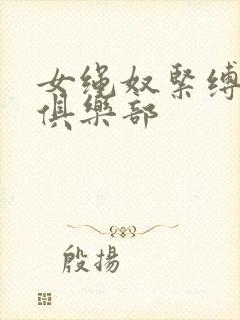 女绳奴緊缚
俱樂部
殷揚